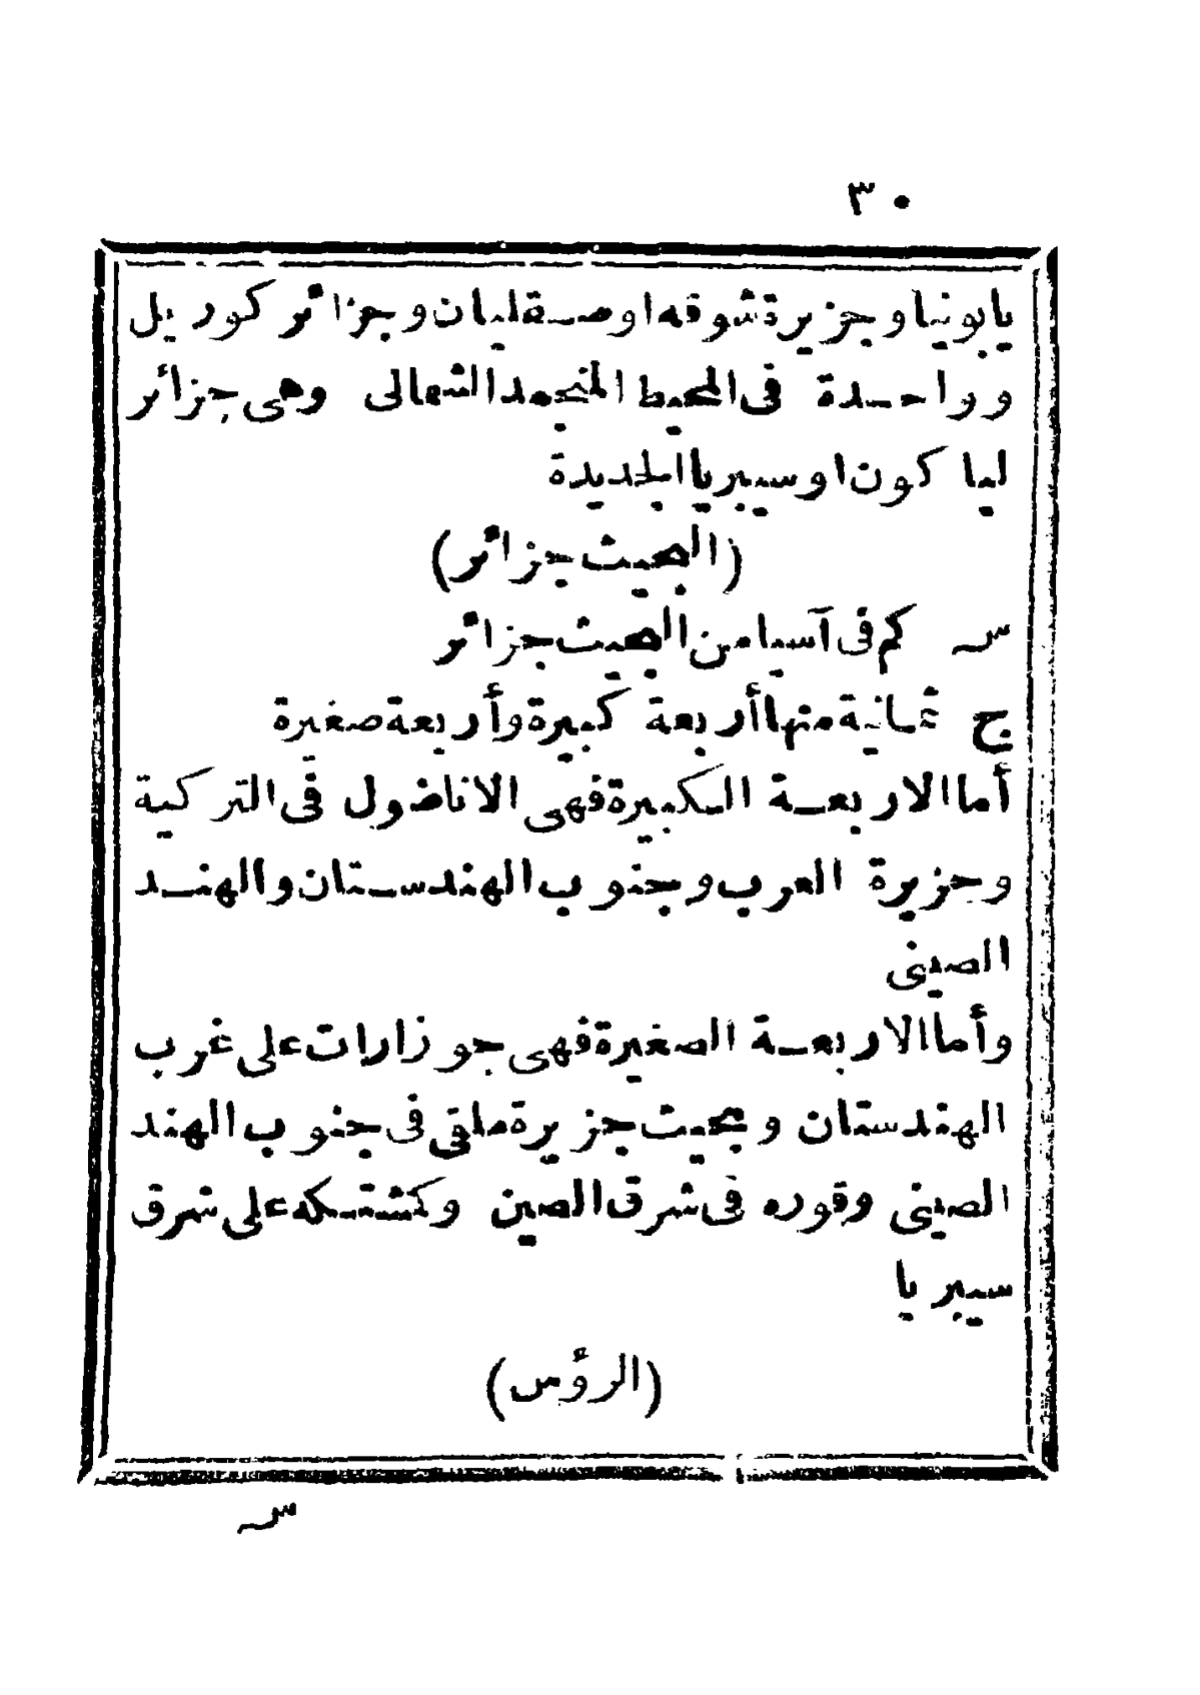 ٣٠
يابونيا وجزيرة شوقه او صقليان وجزائر كوريل
وواحدة فى المحيط المنجمد الشمالى وهى جزائر
لياكون او سيبريا الجديدة
(البحيث جزائر)
س كم فى آسيا من البحيث جزائر
ج ثمانية منها أربعة كبيرة وأربعة صغيرة
أما الاربعة الكبيرة فهى الاناضول فى التركية
وجزيرة العرب وجنوب الهندستان والهند
الصينى
وأما الاربعة الصغيرة فهى جوزارات على غرب
الهندستان وبحيث جزيرة ملقى فى جنوب الهند
الصينى وقوره فى شرق الصين وكشتكه على شرق
سيبريا
(الرؤس)
س